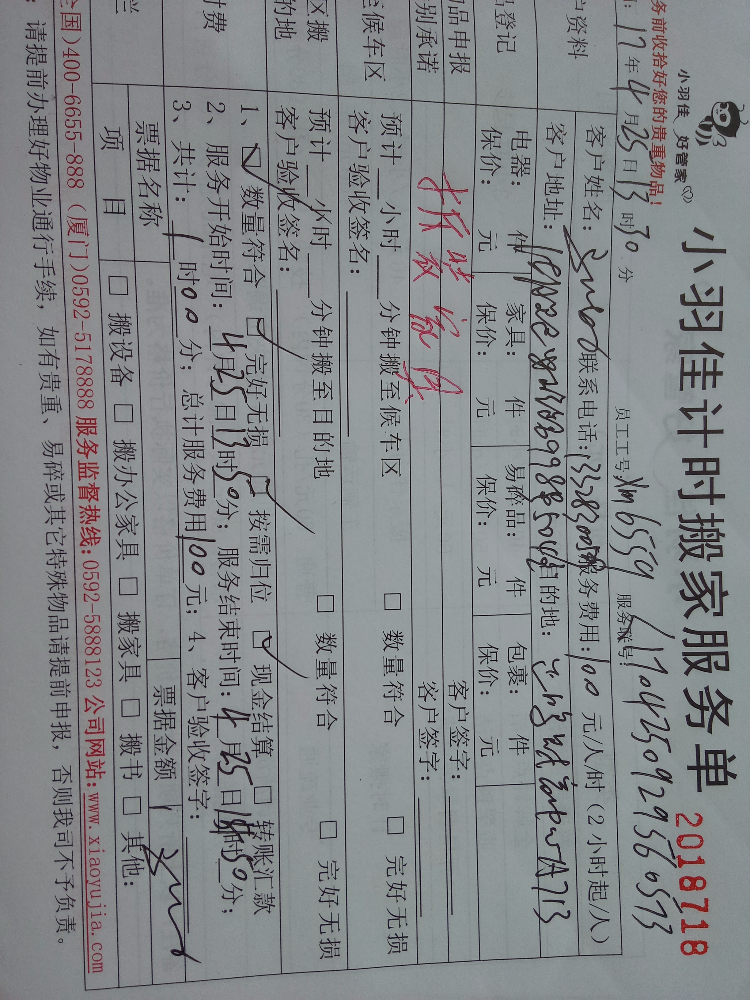 小羽佳 好管家
小羽佳计时搬家服务单
2018718
务前收拾好您的贵重物品!
17年4月25日13时30分
员工工号: Xm6559
服务联号: 17042509295605
户资料
客户姓名:
联系电话:
服务费用:100元/人/时(2小时起/人)
客户地址:
目的地:
品登记
电器: 件 家具: 件 易碎品: 件 包裹: 件
保价: 元 保价: 元 保价: 元 保价: 元
品申报
客户签字:
别承诺
客户签字:
候车区
预计 小时 分钟搬至候车区 □ 数量符合 □ 完好无损
客户验收签名:
区搬
的地
预计 小时 分钟搬至目的地 □ 数量符合 □ 完好无损
客户验收签名:
付费
1、☑ 数量符合 ☑ 完好无损 ☑ 按需归位 ☑ 现金结算 □ 转账汇款
2、服务开始时间:4月25日13时50分;服务结束时间:4月25日14时50分;
3、共计:1时00分;总计服务费用100元;4、客户验收签字:
票据名称
票据金额
项目
□ 搬设备 □ 搬办公家具 □ 搬家具 □ 搬书 □ 其他:
全国)400-6655-888 (厦门)0592-5178888 服务监督热线:0592-5888123 公司网站:www.xiaoyujia.com
:请提前办理好物业通行手续,如有贵重、易碎或其它特殊物品请提前申报,否则我司不予负责。